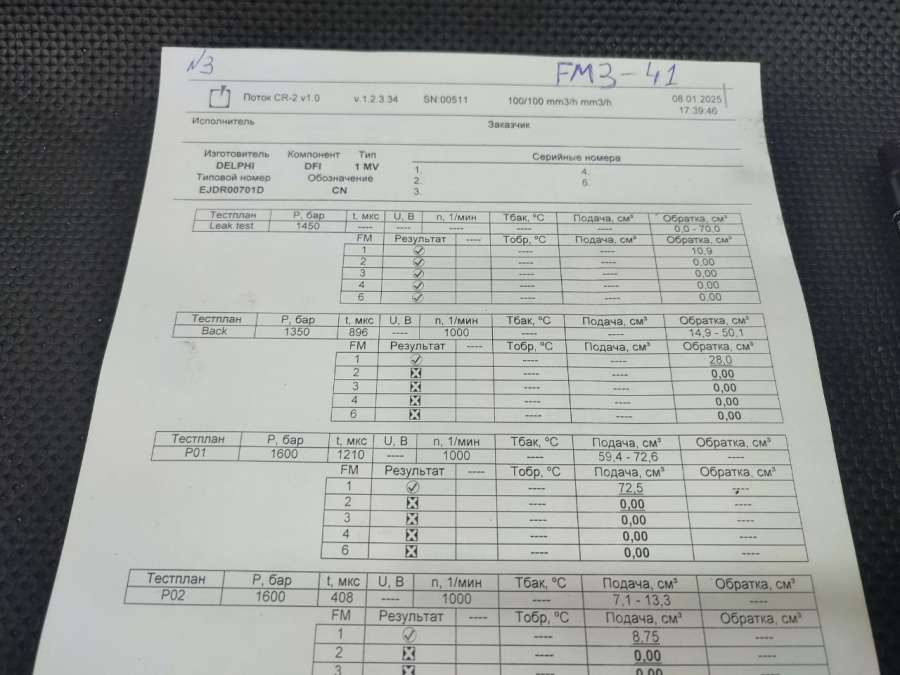 N3
FM3-41
Поток CR-2 v1.0 v.1.2.3.34 SN:00511 100/100 mm3/h mm3/h 08.01.2025
17:39:46
Исполнитель Заказчик
Изготовитель Компонент Тип Серийные номера
DELPHI DFI 1 MV 1. 4.
Типовой номер Обозначение 2. 6.
EJDR00701D CN 3.
Тестплан P, бар t, мкс U, В n, 1/мин Тбак, ºС Подача, см³ Обратка, см³
Leak test 1450 ---- ---- ---- ---- ---- 0,0 - 70,0
FM Результат ---- Тобр, ºС Подача, см³ Обратка, см³
1 ---- ---- 10,9
2 ---- ---- 0,00
3 ---- ---- 0,00
4 ---- ---- 0,00
6 ---- ---- 0,00
Тестплан P, бар t, мкс U, В n, 1/мин Тбак, ºС Подача, см³ Обратка, см³
Back 1350 896 ---- 1000 ---- ---- 14,9 - 50,1
FM Результат ---- Тобр, ºС Подача, см³ Обратка, см³
1 ---- ---- 28,0
2 ---- ---- 0,00
3 ---- ---- 0,00
4 ---- ---- 0,00
6 ---- ---- 0,00
Тестплан P, бар t, мкс U, В n, 1/мин Тбак, ºС Подача, см³ Обратка, см³
P01 1600 1210 ---- 1000 ---- 59,4 - 72,6 ----
FM Результат ---- Тобр, ºС Подача, см³ Обратка, см³
1 ---- 72,5 ----
2 ---- 0,00 ----
3 ---- 0,00 ----
4 ---- 0,00 ----
6 ---- 0,00 ----
Тестплан P, бар t, мкс U, В n, 1/мин Тбак, ºС Подача, см³ Обратка, см³
P02 1600 408 ---- 1000 ---- 7,1 - 13,3 ----
FM Результат ---- Тобр, ºС Подача, см³ Обратка, см³
1 ---- 8,75 ----
2 ---- 0,00 ----
3 ---- 0,00 ----